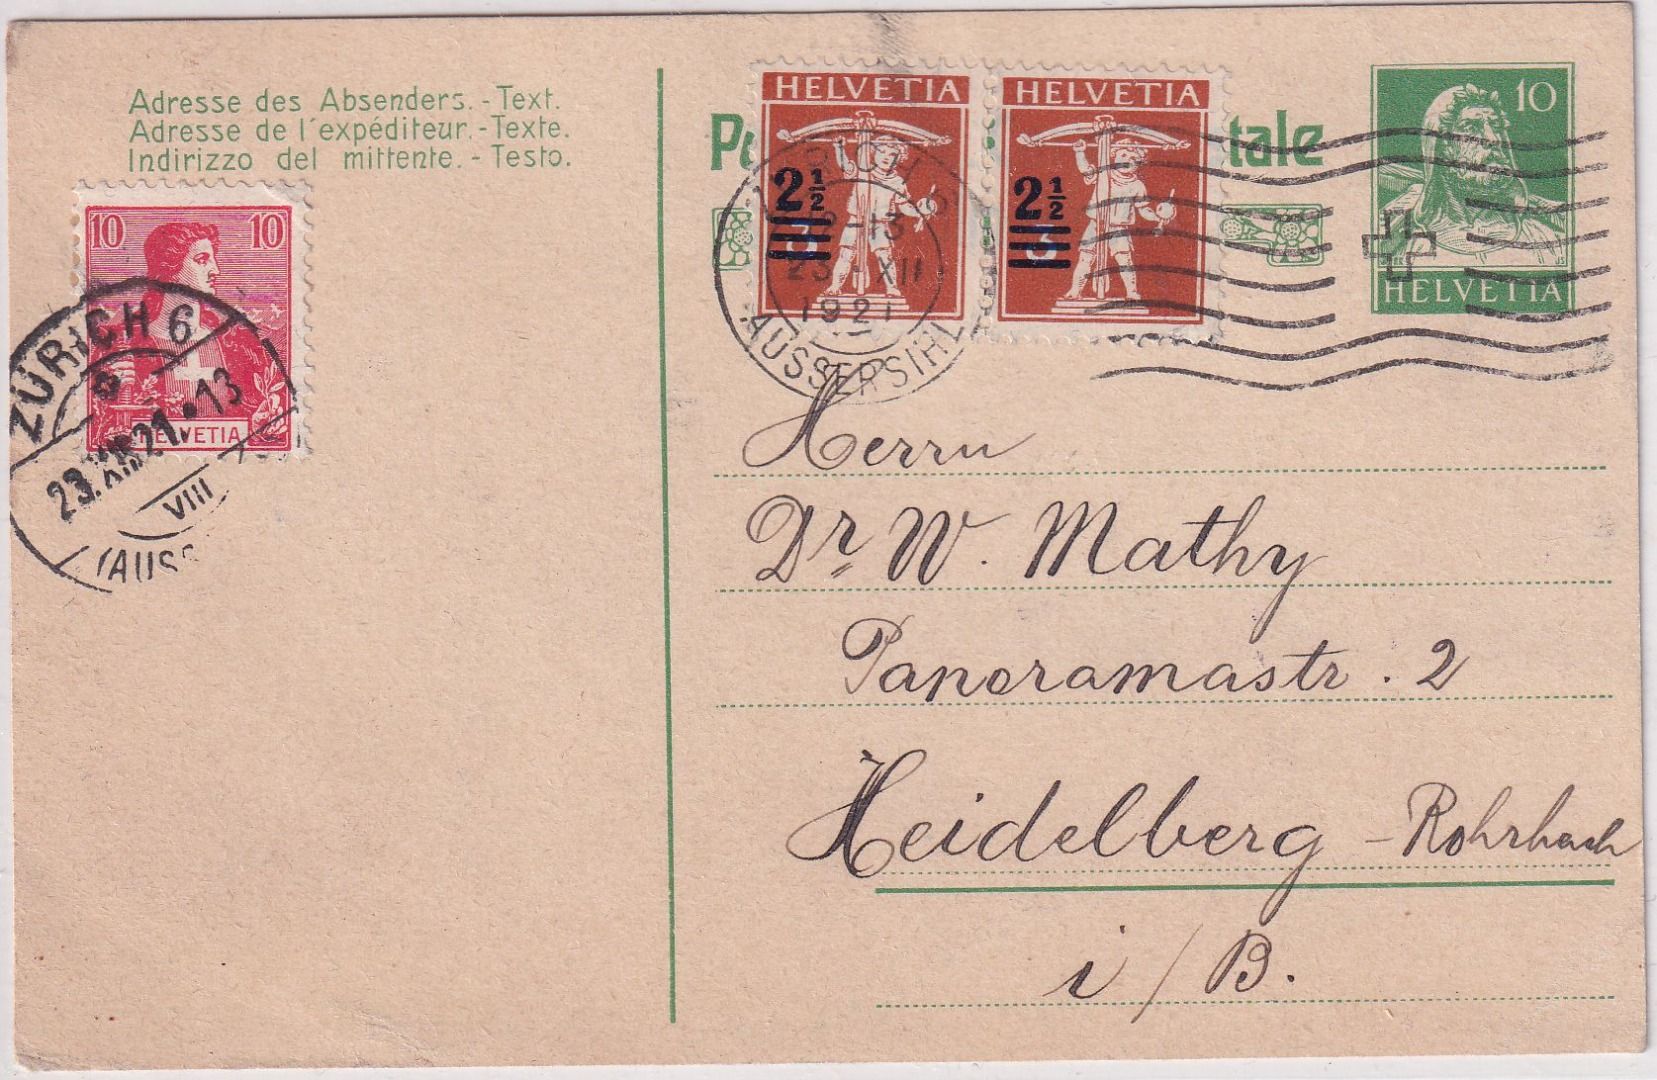 Adresse des Absenders. - Text.
Adresse de l'expéditeur. - Texte.
Indirizzo del mittente. - Testo.
10 10
HELVETIA
ZÜRICH 6
23.XII.21.•13
VIII
(AUSS
HELVETIA
2½
HELVETIA
2½
tale
10
HELVETIA
-13
23.-XII
1921
AUSSERSIHL
Herrn
Dr. W. Mathy
Panoramastr. 2
Heidelberg - Rohrbach
i/B.